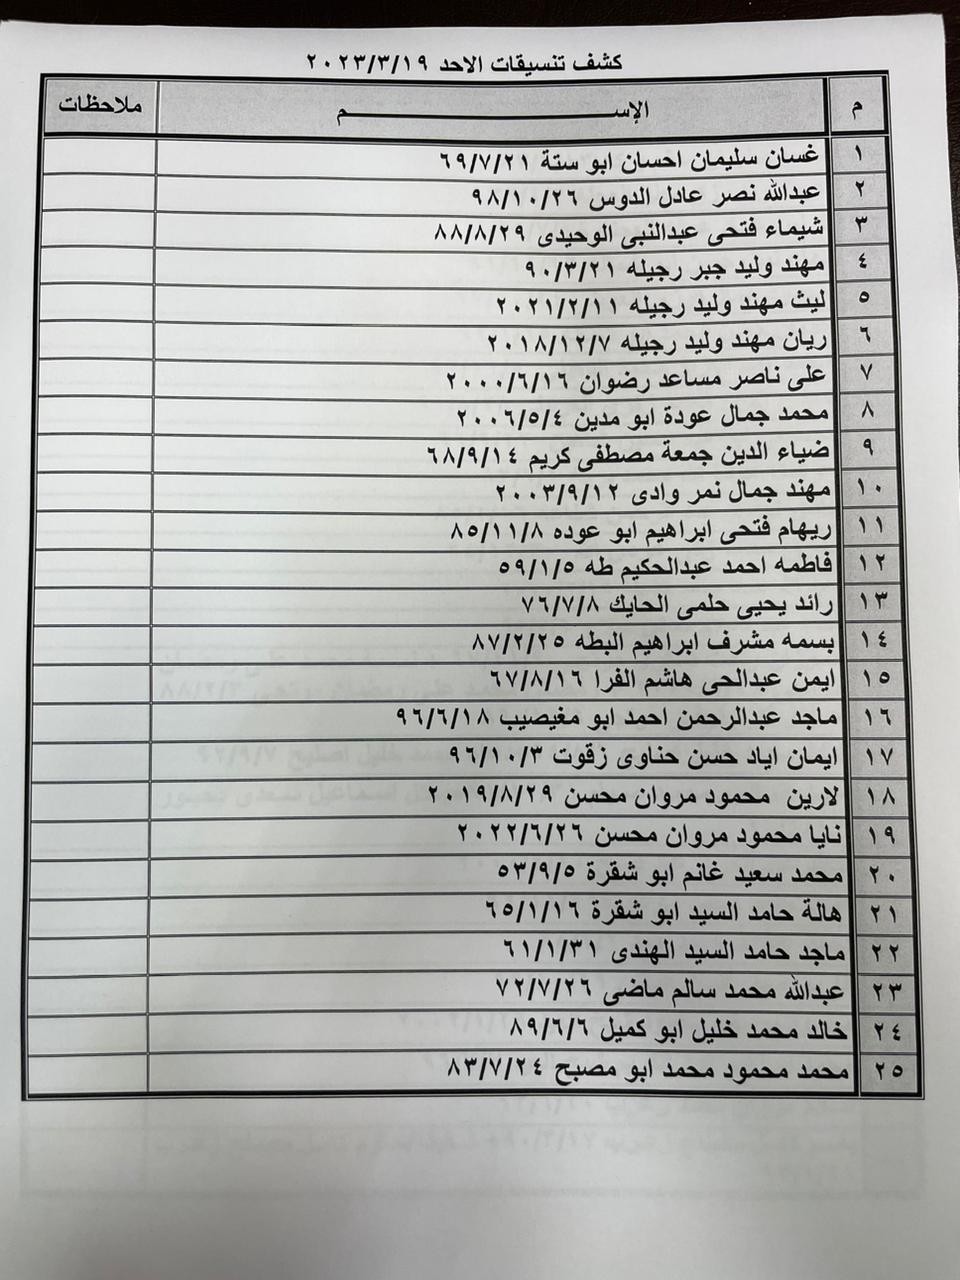 كشف تنسيقات الاحد ٢٠٢٣/٣/١٩
م الإســـــــــــــم ملاحظات
١ غسان سليمان احسان ابو ستة ٦٩/٧/٢١
٢ عبدالله نصر عادل الدوس ٩٨/١٠/٢٦
٣ شيماء فتحى عبدالنبى الوحيدى ٨٨/٨/٢٩
٤ مهند وليد جبر رجيله ٩٠/٣/٢١
٥ ليث مهند وليد رجيله ٢٠٢١/٢/١١
٦ ريان مهند وليد رجيله ٢٠١٨/١٢/٧
٧ على ناصر مساعد رضوان ٢٠٠٠/٦/١٦
٨ محمد جمال عودة ابو مدين ٢٠٠٦/٥/٤
٩ ضياء الدين جمعة مصطفى كريم ٦٨/٩/١٤
١٠ مهند جمال نمر وادى ٢٠٠٣/٩/١٢
١١ ريهام فتحى ابراهيم ابو عوده ٨٥/١١/٨
١٢ فاطمه احمد عبدالحكيم طه ٥٩/١/٥
١٣ رائد يحيى حلمى الحايك ٧٦/٧/٨
١٤ بسمه مشرف ابراهيم البطه ٨٧/٢/٢٥
١٥ ايمن عبدالحى هاشم الفرا ٦٧/٨/١٦
١٦ ماجد عبدالرحمن احمد ابو مغيصيب ٩٦/٦/١٨
١٧ ايمان اياد حسن حناوى زقوت ٩٦/١٠/٣
١٨ لارين محمود مروان محسن ٢٠١٩/٨/٢٩
١٩ نايا محمود مروان محسن ٢٠٢٢/٦/٢٦
٢٠ محمد سعيد غانم ابو شقرة ٥٣/٩/٥
٢١ هالة حامد السيد ابو شقرة ٦٥/١/١٦
٢٢ ماجد حامد السيد الهندى ٦١/١/٣١
٢٣ عبدالله محمد سالم ماضى ٧٢/٧/٢٦
٢٤ خالد محمد خليل ابو كميل ٨٩/٦/٦
٢٥ محمد محمود محمد ابو مصبح ٨٣/٧/٢٤